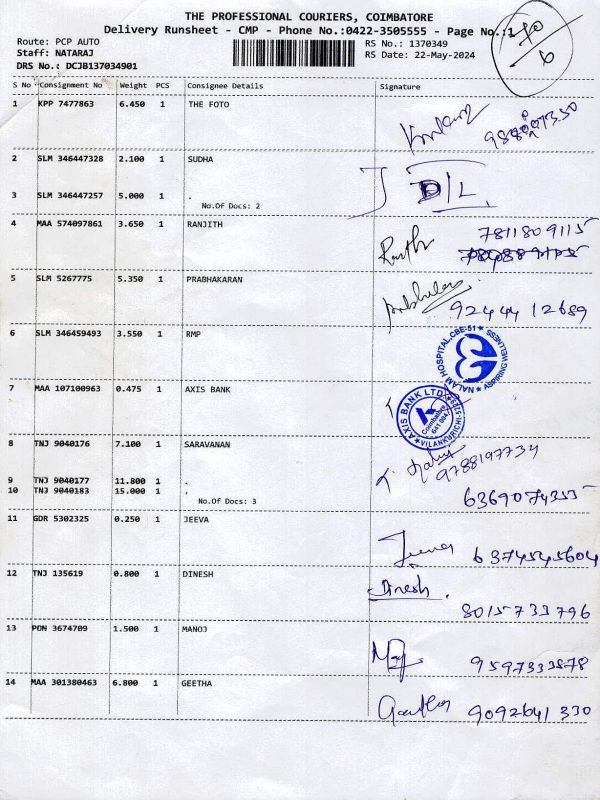 THE PROFESSIONAL COURIERS, COIMBATORE
Delivery Runsheet - CMP - Phone No.:0422-3505555 - Page No.:1
Route: PCP AUTO
Staff: NATARAJ
DRS No.: DCJB137034901
RS No.: 1370349
RS Date: 22-May-2024
S No Consignment No Weight PCS Consignee Details Signature
1 KPP 7477863 6.450 1 THE FOTO
2 SLM 346447328 2.100 1 SUDHA
3 SLM 346447257 5.000 1 .
No.Of Docs: 2
D/L
4 MAA 574097861 3.650 1 RANJITH
7811809115
5 SLM 5267775 5.350 1 PRABHAKARAN
9244412689
6 SLM 346459493 3.550 1 RMP
NALAM HOSPITAL, CBE-51 ★ ASPIRING WELLNESS ★
7 MAA 107100963 0.475 1 AXIS BANK
AXIS BANK LTD
Coimbatore
VILANKURICHI
8 TNJ 9040176 7.100 1 SARAVANAN
9788197734
9 TNJ 9040177 11.800 1 .
10 TNJ 9040183 15.000 1 .
No.Of Docs: 3
6369074355
11 GDR 5302325 0.250 1 JEEVA
Jeeva 6374545604
12 TNJ 135619 0.800 1 DINESH
Dinesh
8015733796
13 PON 3674709 1.500 1 MANOJ
9597333878
14 MAA 301380463 6.800 1 GEETHA
Geetha 9092641330